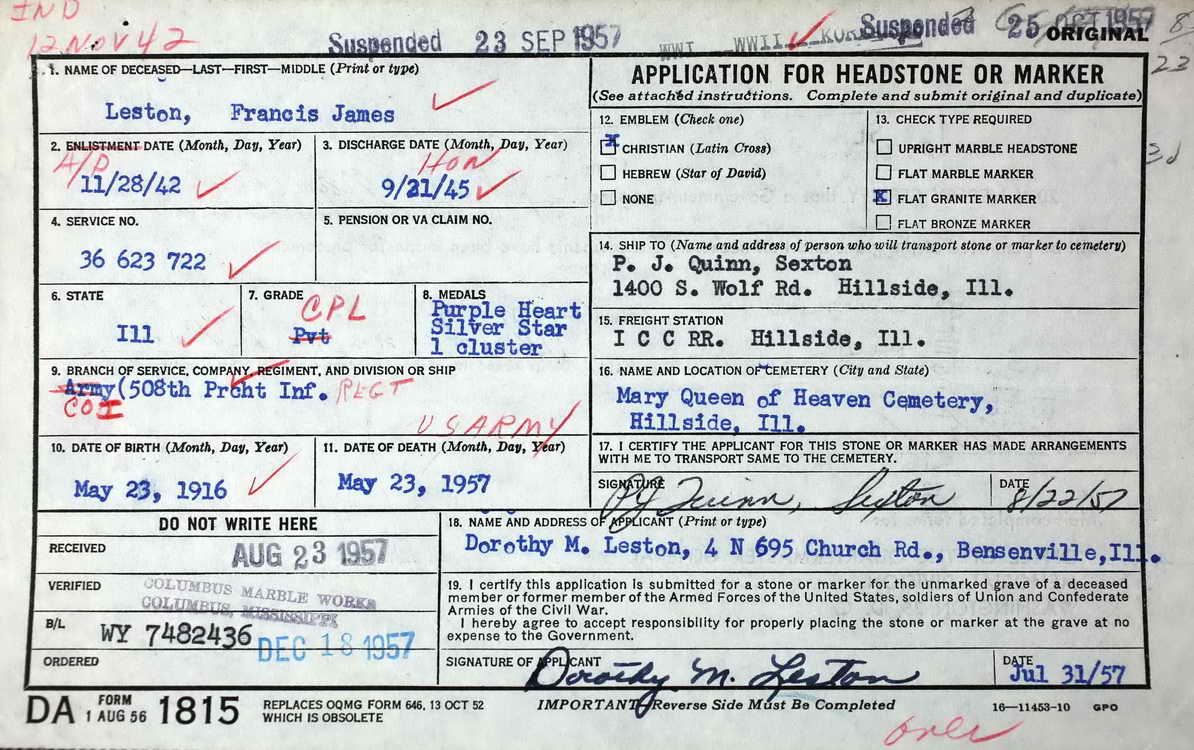 IND
12 NOV 42
Suspended 23 SEP 1957
WWI WWII
Suspended 25 OCT 1957
ORIGINAL
8
23
3d
1. NAME OF DECEASED—LAST—FIRST—MIDDLE (Print or type)
Leston, Francis James
2. ENLISTMENT DATE (Month, Day, Year)
A/D
11/28/42
3. DISCHARGE DATE (Month, Day, Year)
HON
9/21/45
4. SERVICE NO.
36 623 722
5. PENSION OR VA CLAIM NO.
6. STATE
Ill
7. GRADE
CPL
Pvt
8. MEDALS
Purple Heart
Silver Star
1 cluster
9. BRANCH OF SERVICE, COMPANY, REGIMENT, AND DIVISION OR SHIP
Army (508th Prcht Inf. REGT
CO I
US ARMY
10. DATE OF BIRTH (Month, Day, Year)
May 23, 1916
11. DATE OF DEATH (Month, Day, Year)
May 23, 1957
APPLICATION FOR HEADSTONE OR MARKER
(See attached instructions. Complete and submit original and duplicate)
12. EMBLEM (Check one)
X CHRISTIAN (Latin Cross)
HEBREW (Star of David)
NONE
13. CHECK TYPE REQUIRED
UPRIGHT MARBLE HEADSTONE
FLAT MARBLE MARKER
X FLAT GRANITE MARKER
FLAT BRONZE MARKER
14. SHIP TO (Name and address of person who will transport stone or marker to cemetery)
P. J. Quinn, Sexton
1400 S. Wolf Rd. Hillside, Ill.
15. FREIGHT STATION
I C C RR. Hillside, Ill.
16. NAME AND LOCATION OF CEMETERY (City and State)
Mary Queen of Heaven Cemetery,
Hillside, Ill.
17. I CERTIFY THE APPLICANT FOR THIS STONE OR MARKER HAS MADE ARRANGEMENTS
WITH ME TO TRANSPORT SAME TO THE CEMETERY.
SIGNATURE
PJ Quinn, Sexton
DATE
8/22/57
DO NOT WRITE HERE
RECEIVED
AUG 23 1957
VERIFIED
COLUMBUS MARBLE WORKS
COLUMBUS, MISSISSIPPI
B/L
WY 7482436
DEC 18 1957
ORDERED
18. NAME AND ADDRESS OF APPLICANT (Print or type)
Dorothy M. Leston, 4 N 695 Church Rd., Bensenville, Ill.
19. I certify this application is submitted for a stone or marker for the unmarked grave of a deceased
member or former member of the Armed Forces of the United States, soldiers of Union and Confederate
Armies of the Civil War.
I hereby agree to accept responsibility for properly placing the stone or marker at the grave at no
expense to the Government.
SIGNATURE OF APPLICANT
Dorothy M. Leston
DATE
Jul 31/57
DA FORM 1 AUG 56 1815
REPLACES OQMG FORM 646, 13 OCT 52
WHICH IS OBSOLETE
IMPORTANT Reverse Side Must Be Completed
16—11453-10 GPO
over